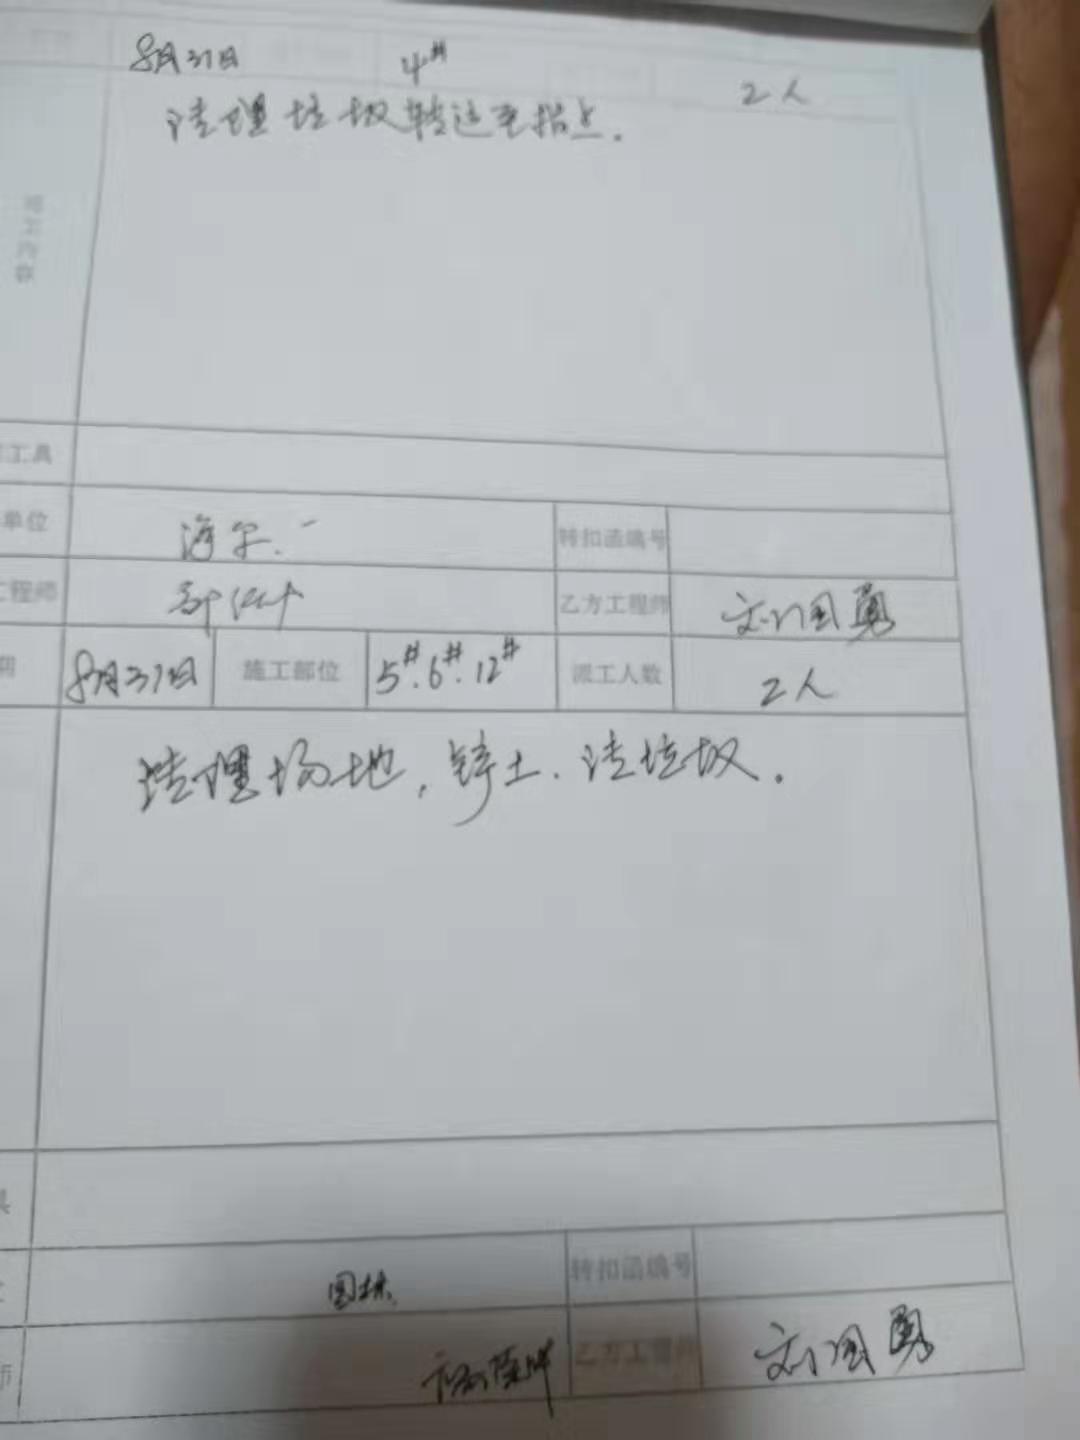 8月31日 4# 2人
清理垃圾转运至指点.
施工内容
工具
单位 海尔. 转扣函编号
工程师 乙方工程师 刘国勇
期 8月31日 施工部位 5#.6#.12# 派工人数 2人
清理场地，锌土、清垃圾.
具
园林 转扣函编号
师 乙方工程师 刘国勇